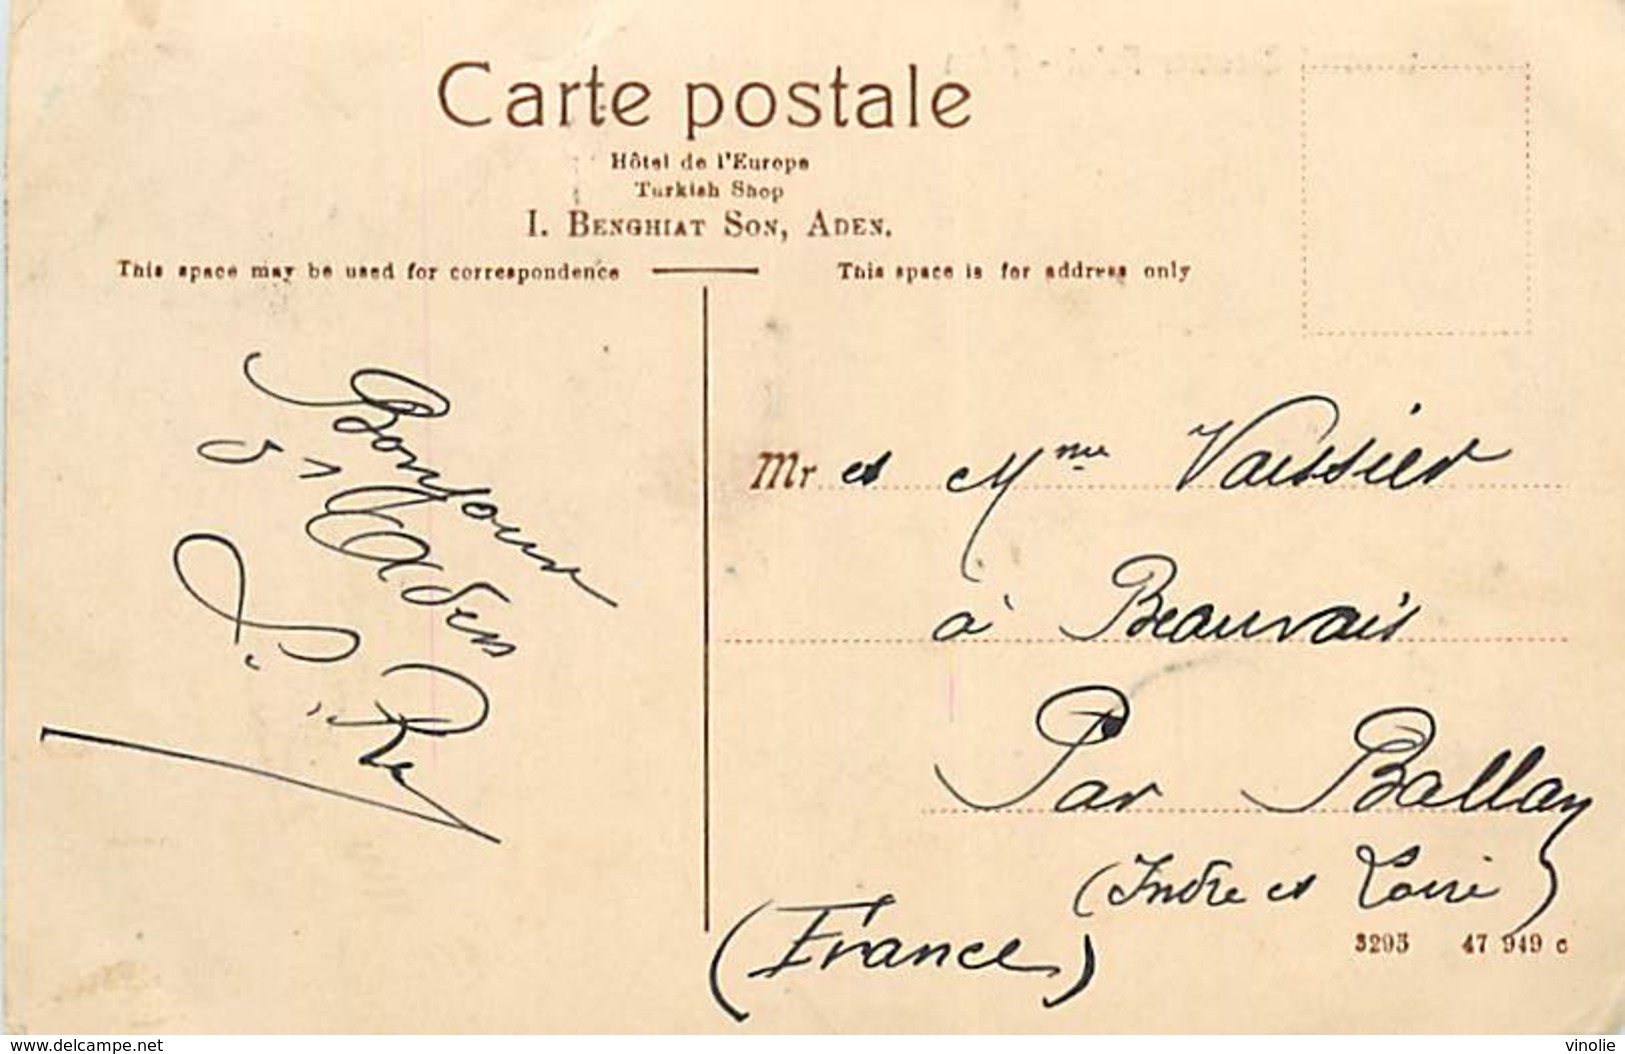 Carte postale
Hôtel de l'Europe
Turkish Shop
I. Benghiat Son, Aden.
This space may be used for correspondence
This space is for address only
Bonjour
d'Aden
Rey
Mr et Mme Vaissier
à Beauvais
Par Ballan
(Indre et Loire)
(France)
3295 47 949 c
www.delcampe.net
vinolie